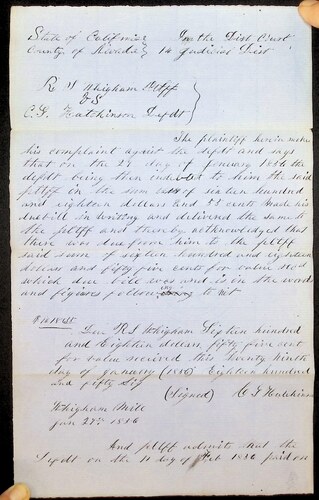 State of California } In the Dist Court
County of Nevada } 14 Judicial Dist
R S Whigham Pltff
vs
C. G. Hutchinson Defdt
The plaintiff herein makes
his complaint against the defdt and says
that on the 29 day of January 1856 the
defdt being then indebted to him the said
pltff in the sum of sixteen hundred
and eighteen dollars and 55 cents made his
duebill in writing and delivered the same to
the pltff and thereby acknowledged that
there was due from him to the pltff
said sum of sixteen hundred and eighteen
dollars and fifty five cents for value recd
which due bill was and is in the words
and figures following to wit
Due R S Whigham Sixteen hundred
and Eighteen dollars fifty five cent
for value received this Twenty Ninth
day of January (1856) Eighteen hundred
and fifty Six
(Signed) C G Hutchinson
Whigham Mill
Jan 29th 1856
And pltff admits that the
Defdt on the 11 day of Feb 1856 paid on